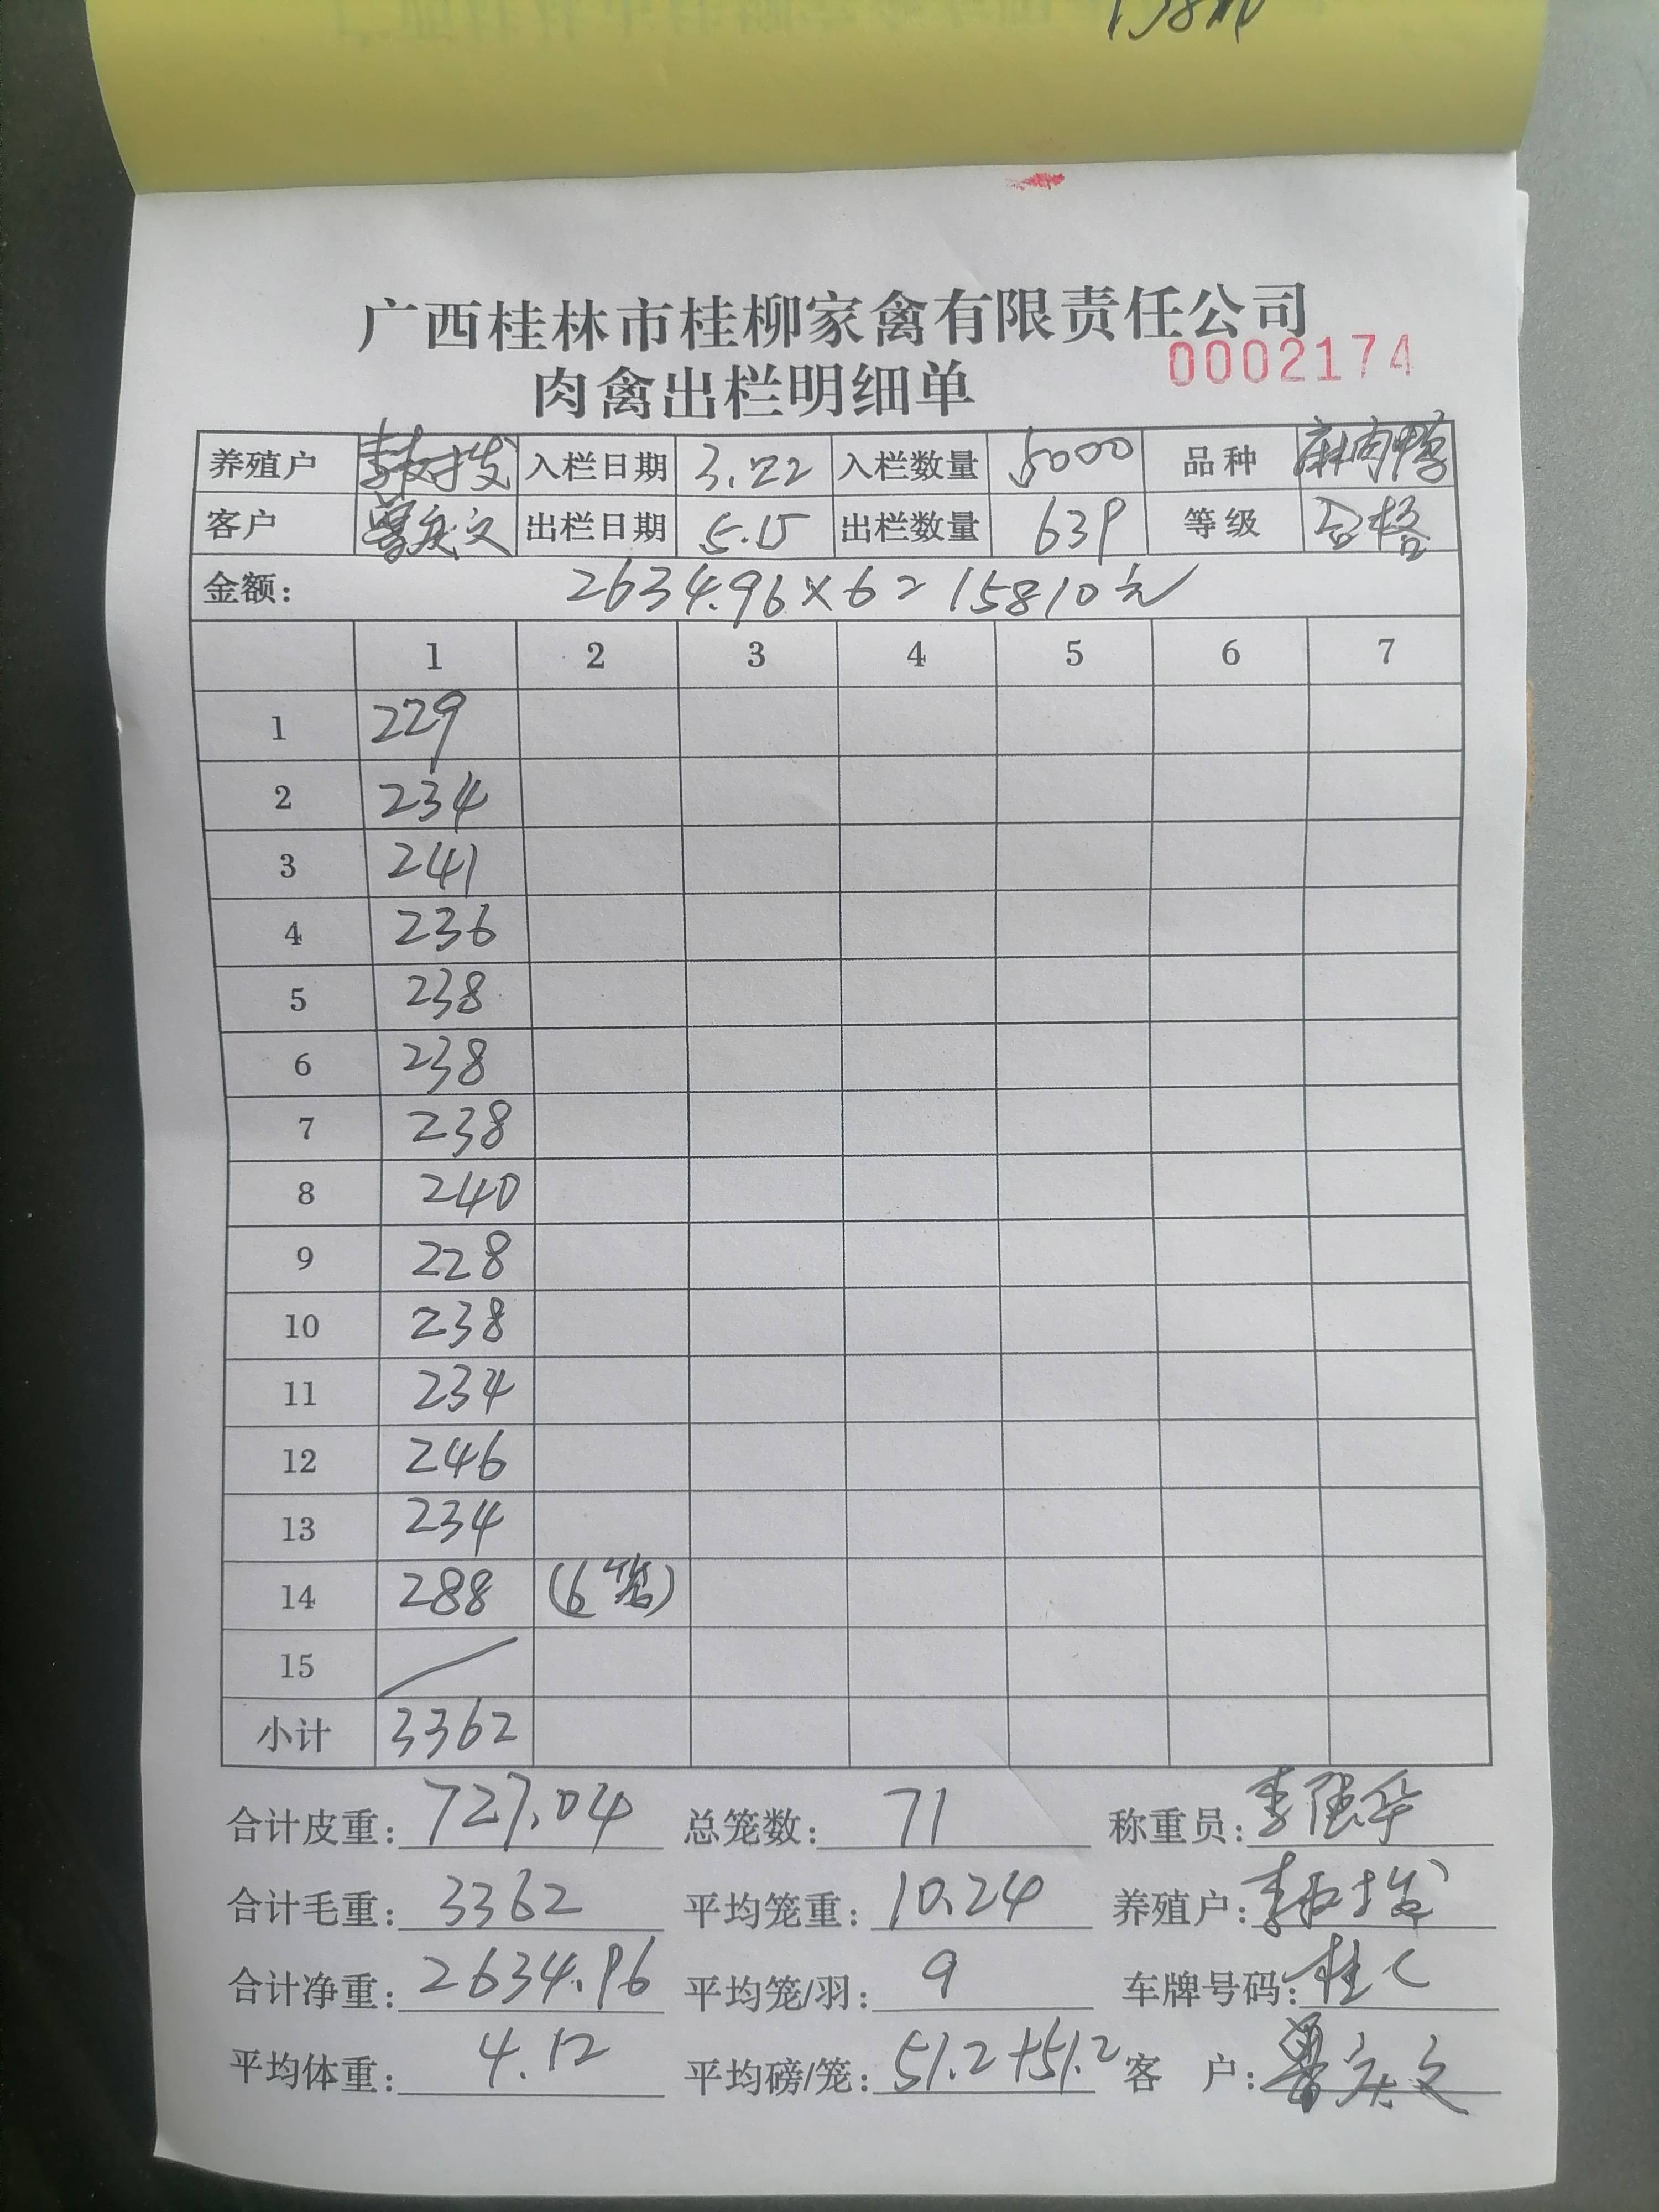 广西桂林市桂柳家禽有限责任公司
0002174
肉禽出栏明细单
养殖户 入栏日期 3.22 入栏数量 5000 品种 麻肉鸭
客户 曾庆文 出栏日期 5.15 出栏数量 639 等级 合格
金额: 2634.96×6=15810元
1 2 3 4 5 6 7
1 229
2 234
3 241
4 236
5 238
6 238
7 238
8 240
9 228
10 238
11 234
12 246
13 234
14 288 (6笼)
15
小计 3362
合计皮重: 727.04 总笼数: 71 称重员: 李陆华
合计毛重: 3362 平均笼重: 10.24 养殖户:
合计净重: 2634.96 平均笼/羽: 9 车牌号码: 桂C
平均体重: 4.12 平均磅/笼: 51.2+51.2 客户: 曾庆文